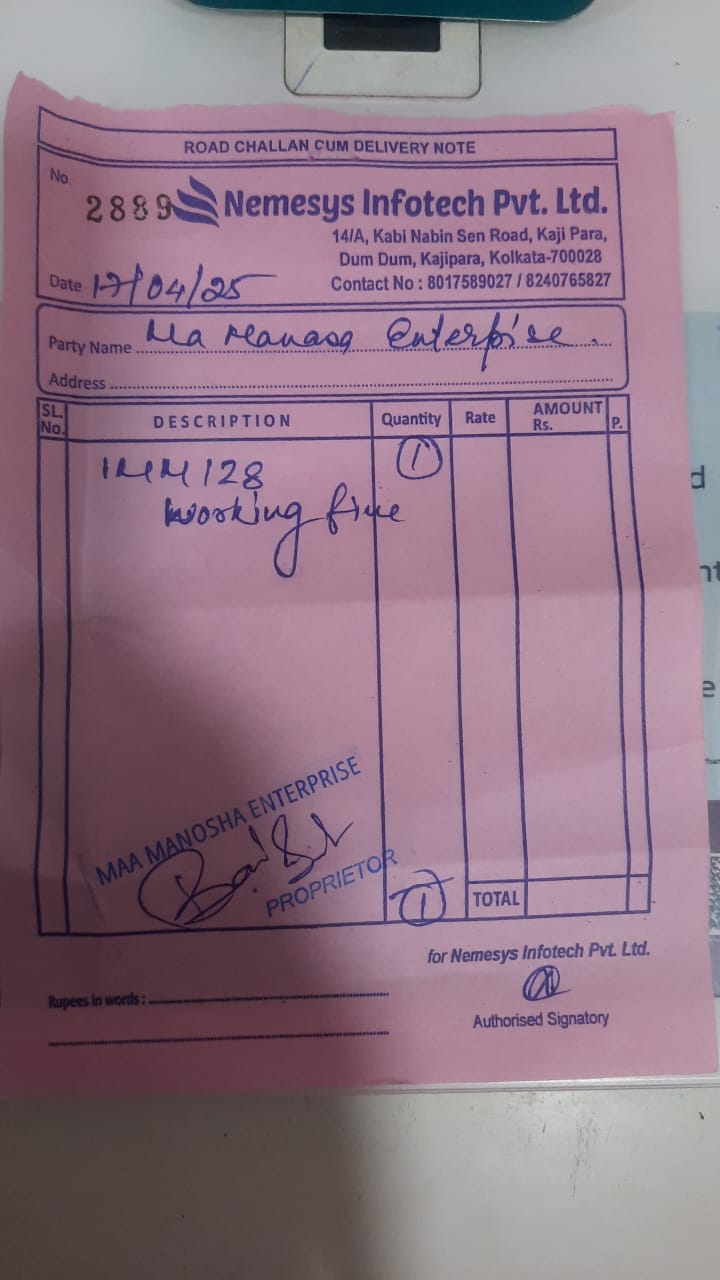 ROAD CHALLAN CUM DELIVERY NOTE
No.
2889 Nemesys Infotech Pvt. Ltd.
14/A, Kabi Nabin Sen Road, Kaji Para,
Dum Dum, Kajipara, Kolkata-700028
Date 17/04/25 Contact No : 8017589027 / 8240765827
Party Name Ma Manasa Enterprise.
Address
SL. No. DESCRIPTION Quantity Rate AMOUNT Rs. P.
128 1
working fine
MAA MANOSHA ENTERPRISE
PROPRIETOR
1 TOTAL
for Nemesys Infotech Pvt. Ltd.
Rupees in words :
Authorised Signatory